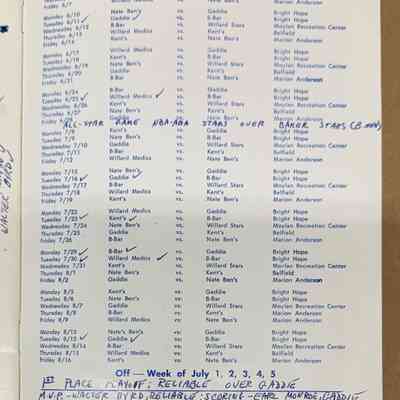 Friday 6/7
Monday 6/10 Nate Ben's vs. B-Bar Bright Hope
Tuesday 6/11 ✓ Gaddie ✓ vs. B-Bar Bright Hope
Wednesday 6/12 Willard Medics vs. Willard Stars Moylan Recreation Center
Kent's vs. Gaddie
Friday 6/14 Nate Ben's Marion Anderson
Monday 6/17
Gaddie vs. Bright Hope
B-Bar vs. Moylan Recreation Center
Willard Medics vs. Kent's Belfield
Friday 6/21 vs. Nate Ben's Marion Anderson
Monday 6/24 B-Bar vs. Gaddie Bright Hope
Tuesday 6/25 ✓ Willard Medics ✓ vs. B-Bar Bright Hope
Wednesday 6/26 Kent's vs. Willard Stars Moylan Recreation Center
Thursday 6/27 Nate Ben's vs.
Gaddie Marion Anderson
ALL-STAR GAME NBA-ABA STARS OVER BAKER STARS
Monday 7/8 Kent's vs. Gaddie Bright Hope
Tuesday 7/9 Nate Ben's vs. B-Bar Bright Hope
Wednesday 7/10 Gaddie vs. Willard Stars Moylan Recreation Center
Thursday 7/11 B-Bar vs. Kent's Belfield
Friday 7/12 Willard Medics vs. Nate Ben's Marion Anderson
Monday 7/15 Nate Ben's vs. Gaddie Bright Hope
Tuesday 7/16 ✓ Gaddie ✓ vs. B-Bar Bright Hope
Wednesday 7/17 B-Bar vs. Willard Stars Moylan Recreation Center
Thursday 7/18 Willard Medics vs. Kent's Belfield
Friday 7/19 Kent's vs. Nate Ben's Marion Anderson
Monday 7/22 Willard Medics vs. Gaddie Bright Hope
Tuesday 7/23 ✓ Kent's ✓ vs. B-Bar Bright Hope
Wednesday 7/24 Nate Ben's vs. Willard Stars Moylan Recreation Center
Thursday 7/25 Gaddie vs. Kent's Belfield
Friday 7/26 B-Bar vs. Nate Ben's Marion Anderson
Monday 7/29 ✓ B-Bar ✓ vs. Gaddie Bright Hope
Tuesday 7/30 ✓ Willard Medics ✓ vs. B-Bar Bright Hope
Wednesday 7/31 Kent's vs. Willard Stars Moylan Recreation Center
Thursday 8/1 Nate Ben's vs. Kent's Belfield
Friday 8/2 Gaddie vs. Nate Ben's Marion Anderson
Monday 8/5 Kent's vs: Gaddie Bright Hope
Tuesday 8/6 Nate Ben's vs: B-Bar Bright Hope
Wednesday 8/7 Gaddie vs: Willard Stars Moylan Recreation Center
Thursday 8/8 B-Bar vs: Kent's Belfield
Friday 8/9 Willard Medics vs: Nate Ben's Marion Anderson
Monday 8/12 Nate's Ben's vs: Gaddie Bright Hope
Tuesday 8/13 ✓ Gaddie ✓ vs: B-Bar Bright Hope
Wednesday 8/14 B-Bar vs: Willard Stars Moylan Recreation Center
Thursday 8/15 Willard Medics vs: Kent's Belfield
Friday 8/16 Kent's vs: Nate Ben's Marion Anderson
OFF — Week of July 1, 2, 3, 4, 5
1ST PLACE PLAYOFF: RELIABLE OVER GADDIE
M.V.P.-WALTER BYRD, RELIABLE: SCORING-EARL MONROE, GADDIE
WALTER BYRD